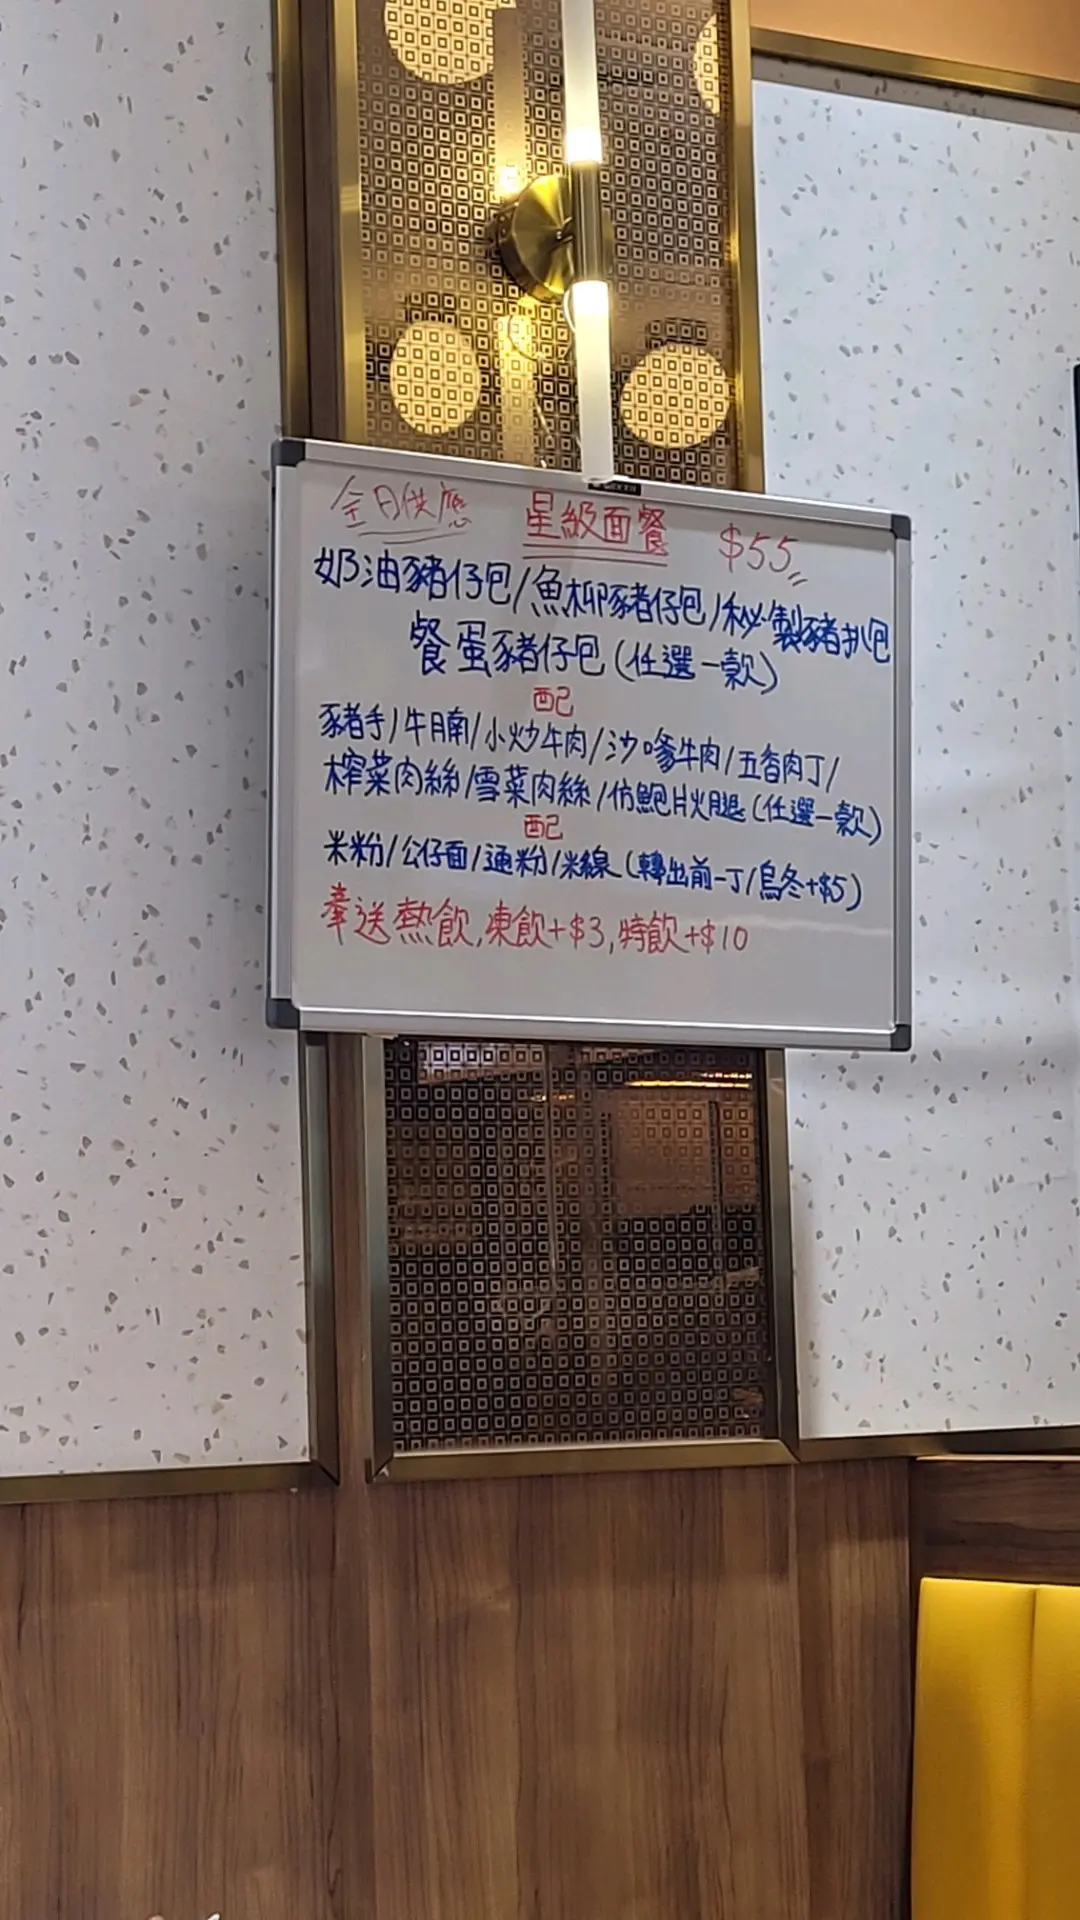 全日供應 星級面餐 $55
奶油豬仔包/魚柳豬仔包/秘製豬扒包
餐蛋豬仔包(任選一款)
配
豬手/牛腩/小炒牛肉/沙嗲牛肉/五香肉丁/
榨菜肉絲/雪菜肉絲/仿鮑片火腿(任選一款)
配
米粉/公仔面/通粉/米線(轉出前一丁/烏冬+$5)
奉送熱飲,凍飲+$3,特飲+$10